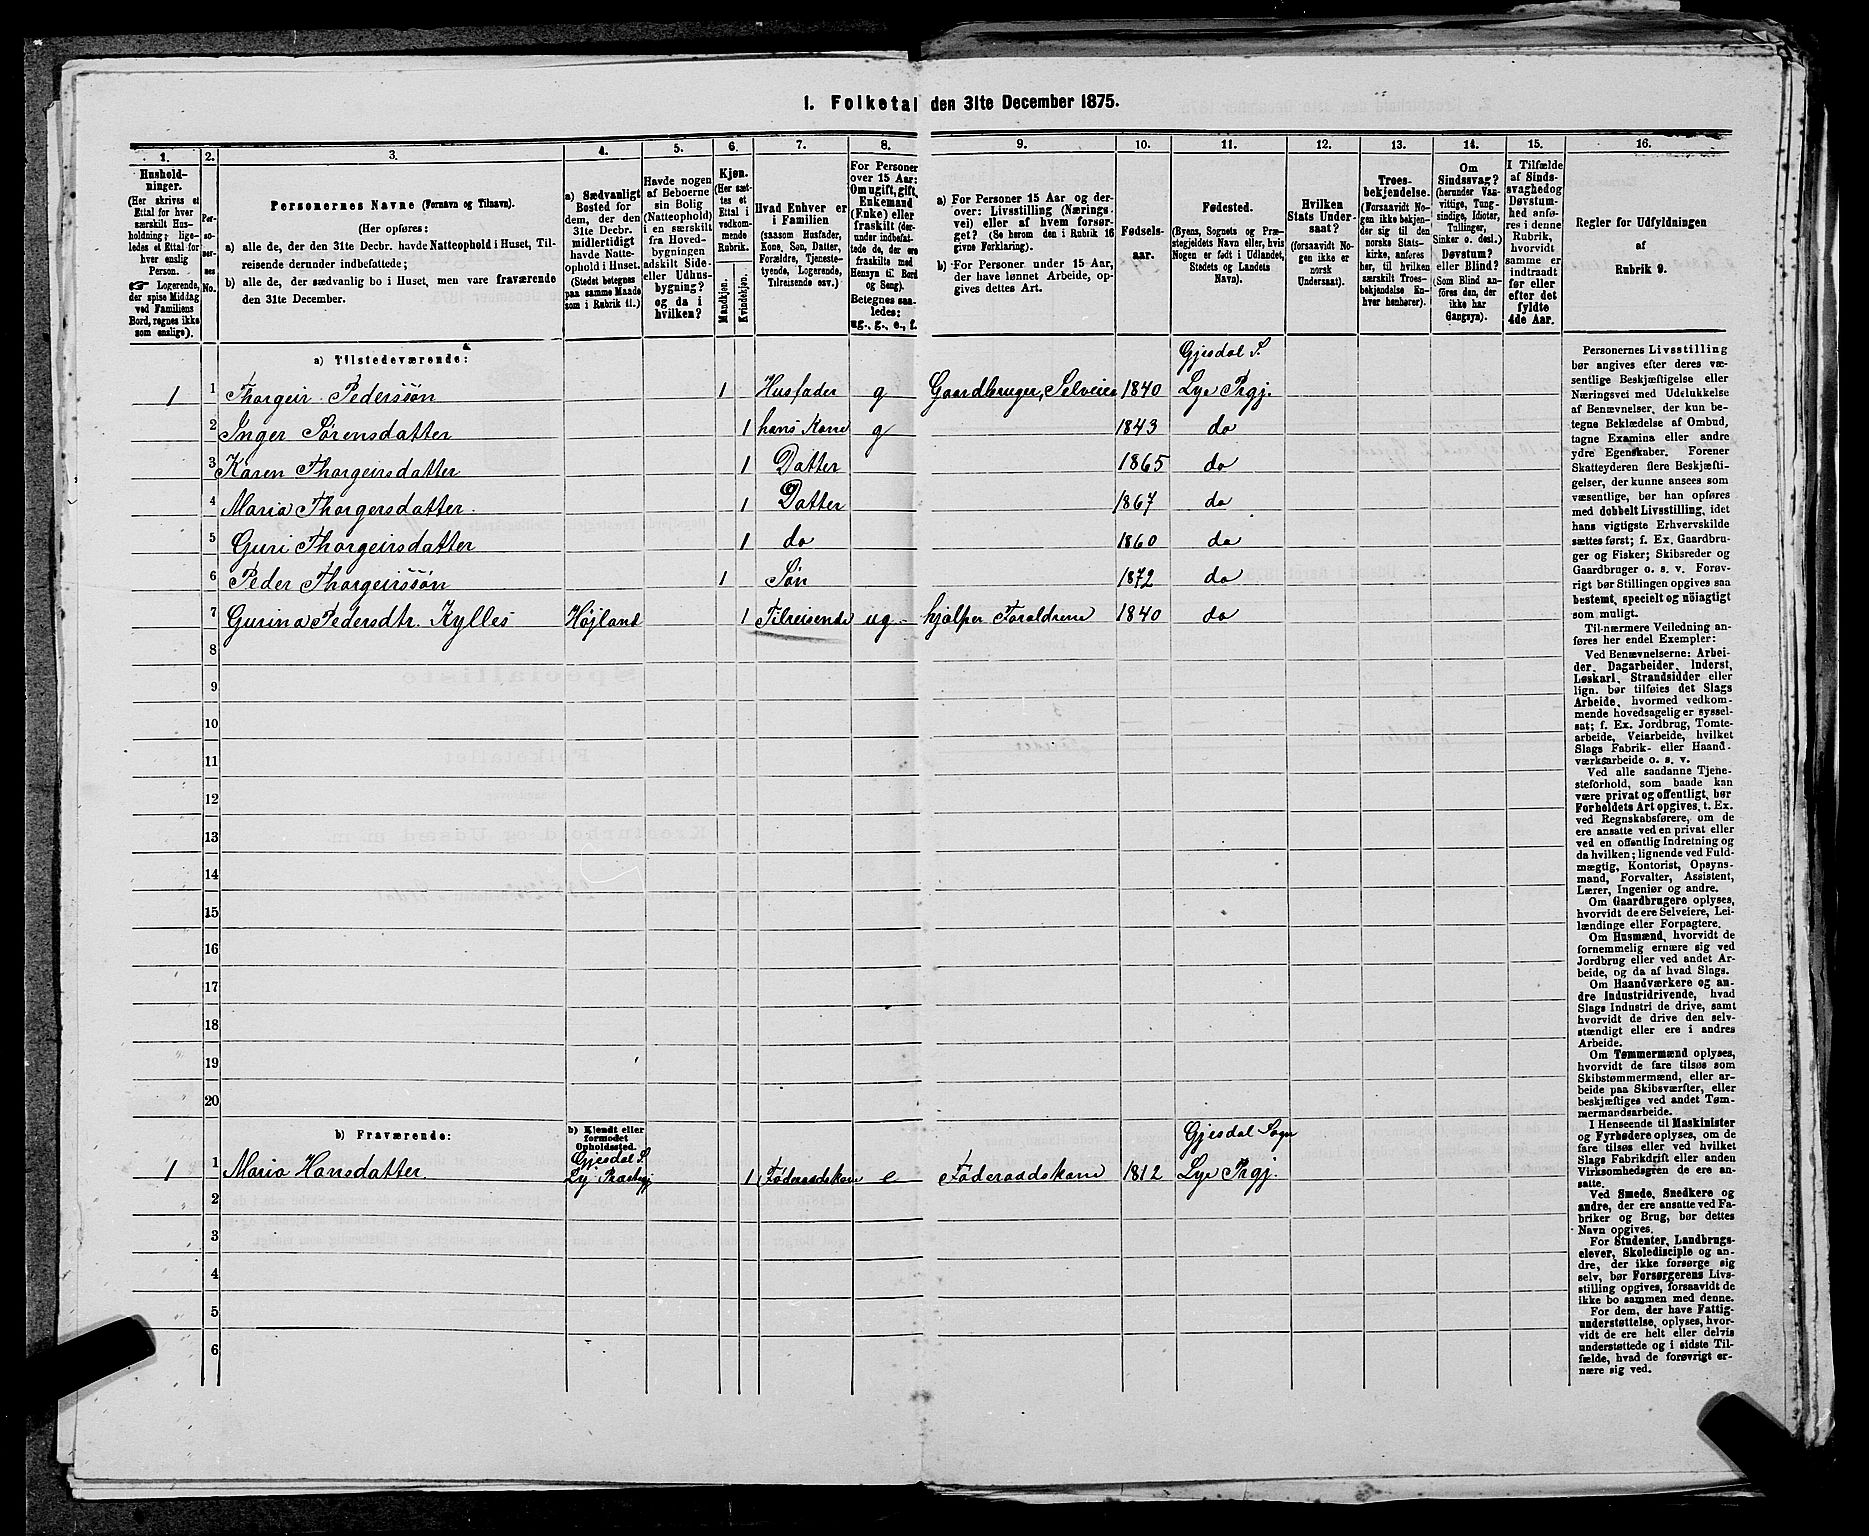 1. Folketal den 31te December 1875.
1.
Hushold-
ninger.
(Her skrives et
Ettal for hver
særskilt Hus-
holdning; lige-
ledes et Ettal for
hver enslig
Person.
Logerende,
der spise Middag
ved Familiens
Bord, regnes ikke
som enslige).
2.
Per-
so-
ner-
nes
No.
3.
Personernes Navne (Fornavn og Tilnavn).
(Her opføres:
a) alle de, der den 31te Decbr. havde Natteophold i Huset, Til-
reisende derunder indbefattede;
b) alle de, der sædvanlig bo i Huset, men vare fraværende
den 31te December.
4.
a) Sædvanligt
Bosted for
dem, der den
31te Decbr.
midlertidigt
havde Natte-
ophold i Huset.
(Stedet betegnes
paa samme Maade
som i Rubrik 11.)
5.
Havde nogen
af Beboerne
sin Bolig
(Natteophold)
i en særskilt
fra Hoved-
bygningen
adskilt Side-
eller Udhus-
bygning?
og da i
hvilken?
6.
Kjøn.
(Her sæt-
tes et
Ettal i
vedkom-
mende
Rubrik.
Mandkjøn.
Kvindekjøn.
7.
Hvad Enhver er
i Familien
(saasom Husfader,
Kone, Søn, Datter,
Forældre, Tjeneste-
tyende, Logerende,
Tilreisende osv.)
8.
For Personer
over 15 Aar:
Om ugift, gift,
Enkemand
(Enke) eller
fraskilt (der-
under indbefat-
tede de, der ere
fraskilte med
Hensyn til Bord
og Seng).
Betegnes saa-
ledes:
ug., g., e., f.
9.
a) For Personer 15 Aar og der-
over: Livsstilling (Nærings-
vei) eller af hvem forsør-
get? (Se herom den i Rubrik 16
givne Forklaring).
b) For Personer under 15 Aar,
der have lønnet Arbeide, op-
gives dettes Art.
10.
Fødsels-
aar.
11.
Fødested.
(Byens, Sognets og Præ-
stegjeldets Navn eller, hvis
Nogen er født i Udlandet,
Stedets og Landets
Navn).
12.
Hvilken
Stats Under-
saat?
(forsaavidt No-
gen ikke er
norsk
Undersaat).
13.
Troes-
bekjendelse.
(Forsaavidt No-
gen ikke bekjen-
der sig til den
norske Stats-
kirke, anføres
her, til hvilken
særskilt Troes-
bekjendelse En-
hver henhører).
14.
Om
Sindssvag?
(herunder Van-
vittige, Tung-
sindige, Idioter,
Tullinger,
Sinker o. desl.)
Døvstum?
eller Blind?
(Som Blind an-
føres den, der
ikke har
Gangsyn).
15.
I Tilfælde
af Sinds-
svaghed og
Døvstum-
hed anfø-
res i denne
Rubrik,
hvorvidt
samme er
indtraadt
før eller
efter det
fyldte
4de Aar.
16.
Regler for Udfyldningen
af
Rubrik 9.
a) Tilstedeværende: Gjesdal S.
1 1 Thorgeir Pederssøn 1 Husfader g Gaardbruger, Selveier 1840 Lye Prgj.
2 Inger Sørensdatter 1 hans Kone g 1843 do
3 Karen Thorgeirsdatter 1 Datter 1865 do
4 Maria Thorgersdatter 1 Datter 1867 do
5 Guri Thorgeirsdatter 1 do 1860 do
6 Peder Thorgeirssøn 1 Søn 1872 do
7 Gurina Pedersdtr. Kylles Højland 1 Tilreisende ug hjælper Foraldrene 1840 do
8
9
10
11
12
13
14
15
16
17
18
19
20
b) Fraværende:
b) Kjendt eller
formodet
Opholdssted.
Gjesdal S. Gjesdal Sogn
1 1 Maria Hansdatter. Ly 1 Føderaadskone e Føderaadskone 1812 Lye Prgj.
2
3
4
5
6
Personernes Livsstilling
bør angives efter deres væ-
sentlige Beskjæftigelse eller
Næringsvei med Udelukkelse
af Benævnelser, der kun be-
tegne Beklædelse af Ombud,
tagne Examina eller andre
ydre Egenskaber. Forener
Skatteyderen flere Beskjæfti-
gelser, der kunne ansees som
væsentlige, bør han opføres
med dobbelt Livsstilling, idet
hans vigtigste Erhvervskilde
sættes først; f. Ex. Gaardbru-
ger og Fisker; Skibsreder og
Gaardbruger o. s. v. Forøv-
rigt bør Stillingen opgives saa
bestemt, specielt og nöiagtigt
som muligt.
Til nærmere Veiledning an-
føres her endel Exempler:
Ved Benævnelserne: Arbei-
der, Dagarbeider, Inderst,
Løskarl, Strandsidder eller
lign. bør tilføies det Slags
Arbeide, hvormed vedkom-
mende hovedsagelig er syssel-
sat; f. Ex. Jordbrug, Tomte-
arbeide, Veiarbeide, hvilket
Slags Fabrik- eller Haand-
værksarbeide o. s. v.
Ved alle saadanne Tjene-
steforhold, som baade kan
være privat og offentligt, bør
Forholdets Art opgives, t. Ex.
ved Regnskabsførere, om de
ere ansatte ved en privat eller
ved en offentlig Indretning og
da hvilken; lignende ved Fuld-
mægtig, Kontorist, Opsyns-
mand, Forvalter, Assistent,
Lærer, Ingeniør og andre.
Om Gaardbrugere oplyses,
hvorvidt de ere Selveiere, Lei-
lændinge eller Forpagtere.
Om Husmænd, hvorvidt de
fornemmelig ernære sig ved
Jordbrug eller ved andet Ar-
beide, og da af hvad Slags.
Om Haandværkere og an-
dre Industridrivende, hvad
Slags Industri de drive, samt
hvorvidt de drive den selv-
stændigt eller ere i andres
Arbeide.
Om Tømmermænd oplyses,
hvorvidt de fare tilsøs som
Skibstømmermænd, eller ar-
beide paa Skibsværfter, eller
beskjæftiges ved andet Tøm-
mermandsarbeide.
I Henseende til Maskinister
og Fyrbødere oplyses, om de
fare tilsøs eller ved hvilket
Slags Fabrikdrift eller anden
Virksomhedsgren de ere an-
satte.
Ved Smede, Snedkere og
andre, der ere ansatte ved Fa-
briker og Brug, bør dettes
Navn opgives.
For Studenter, Landbrugs-
elever, Skoledisciple og an-
dre, der ikke forsørge sig
selv, bør Forsørgerens Livs-
stilling opgives, forsaavidt de
ikke bo sammen med denne.
For dem, der have Fattig-
understøttelse, oplyses, hvor-
vidt de ere helt eller delvis
understøttede og i sidste Til-
fælde, hvad de forøvrigt er-
nære sig ved.